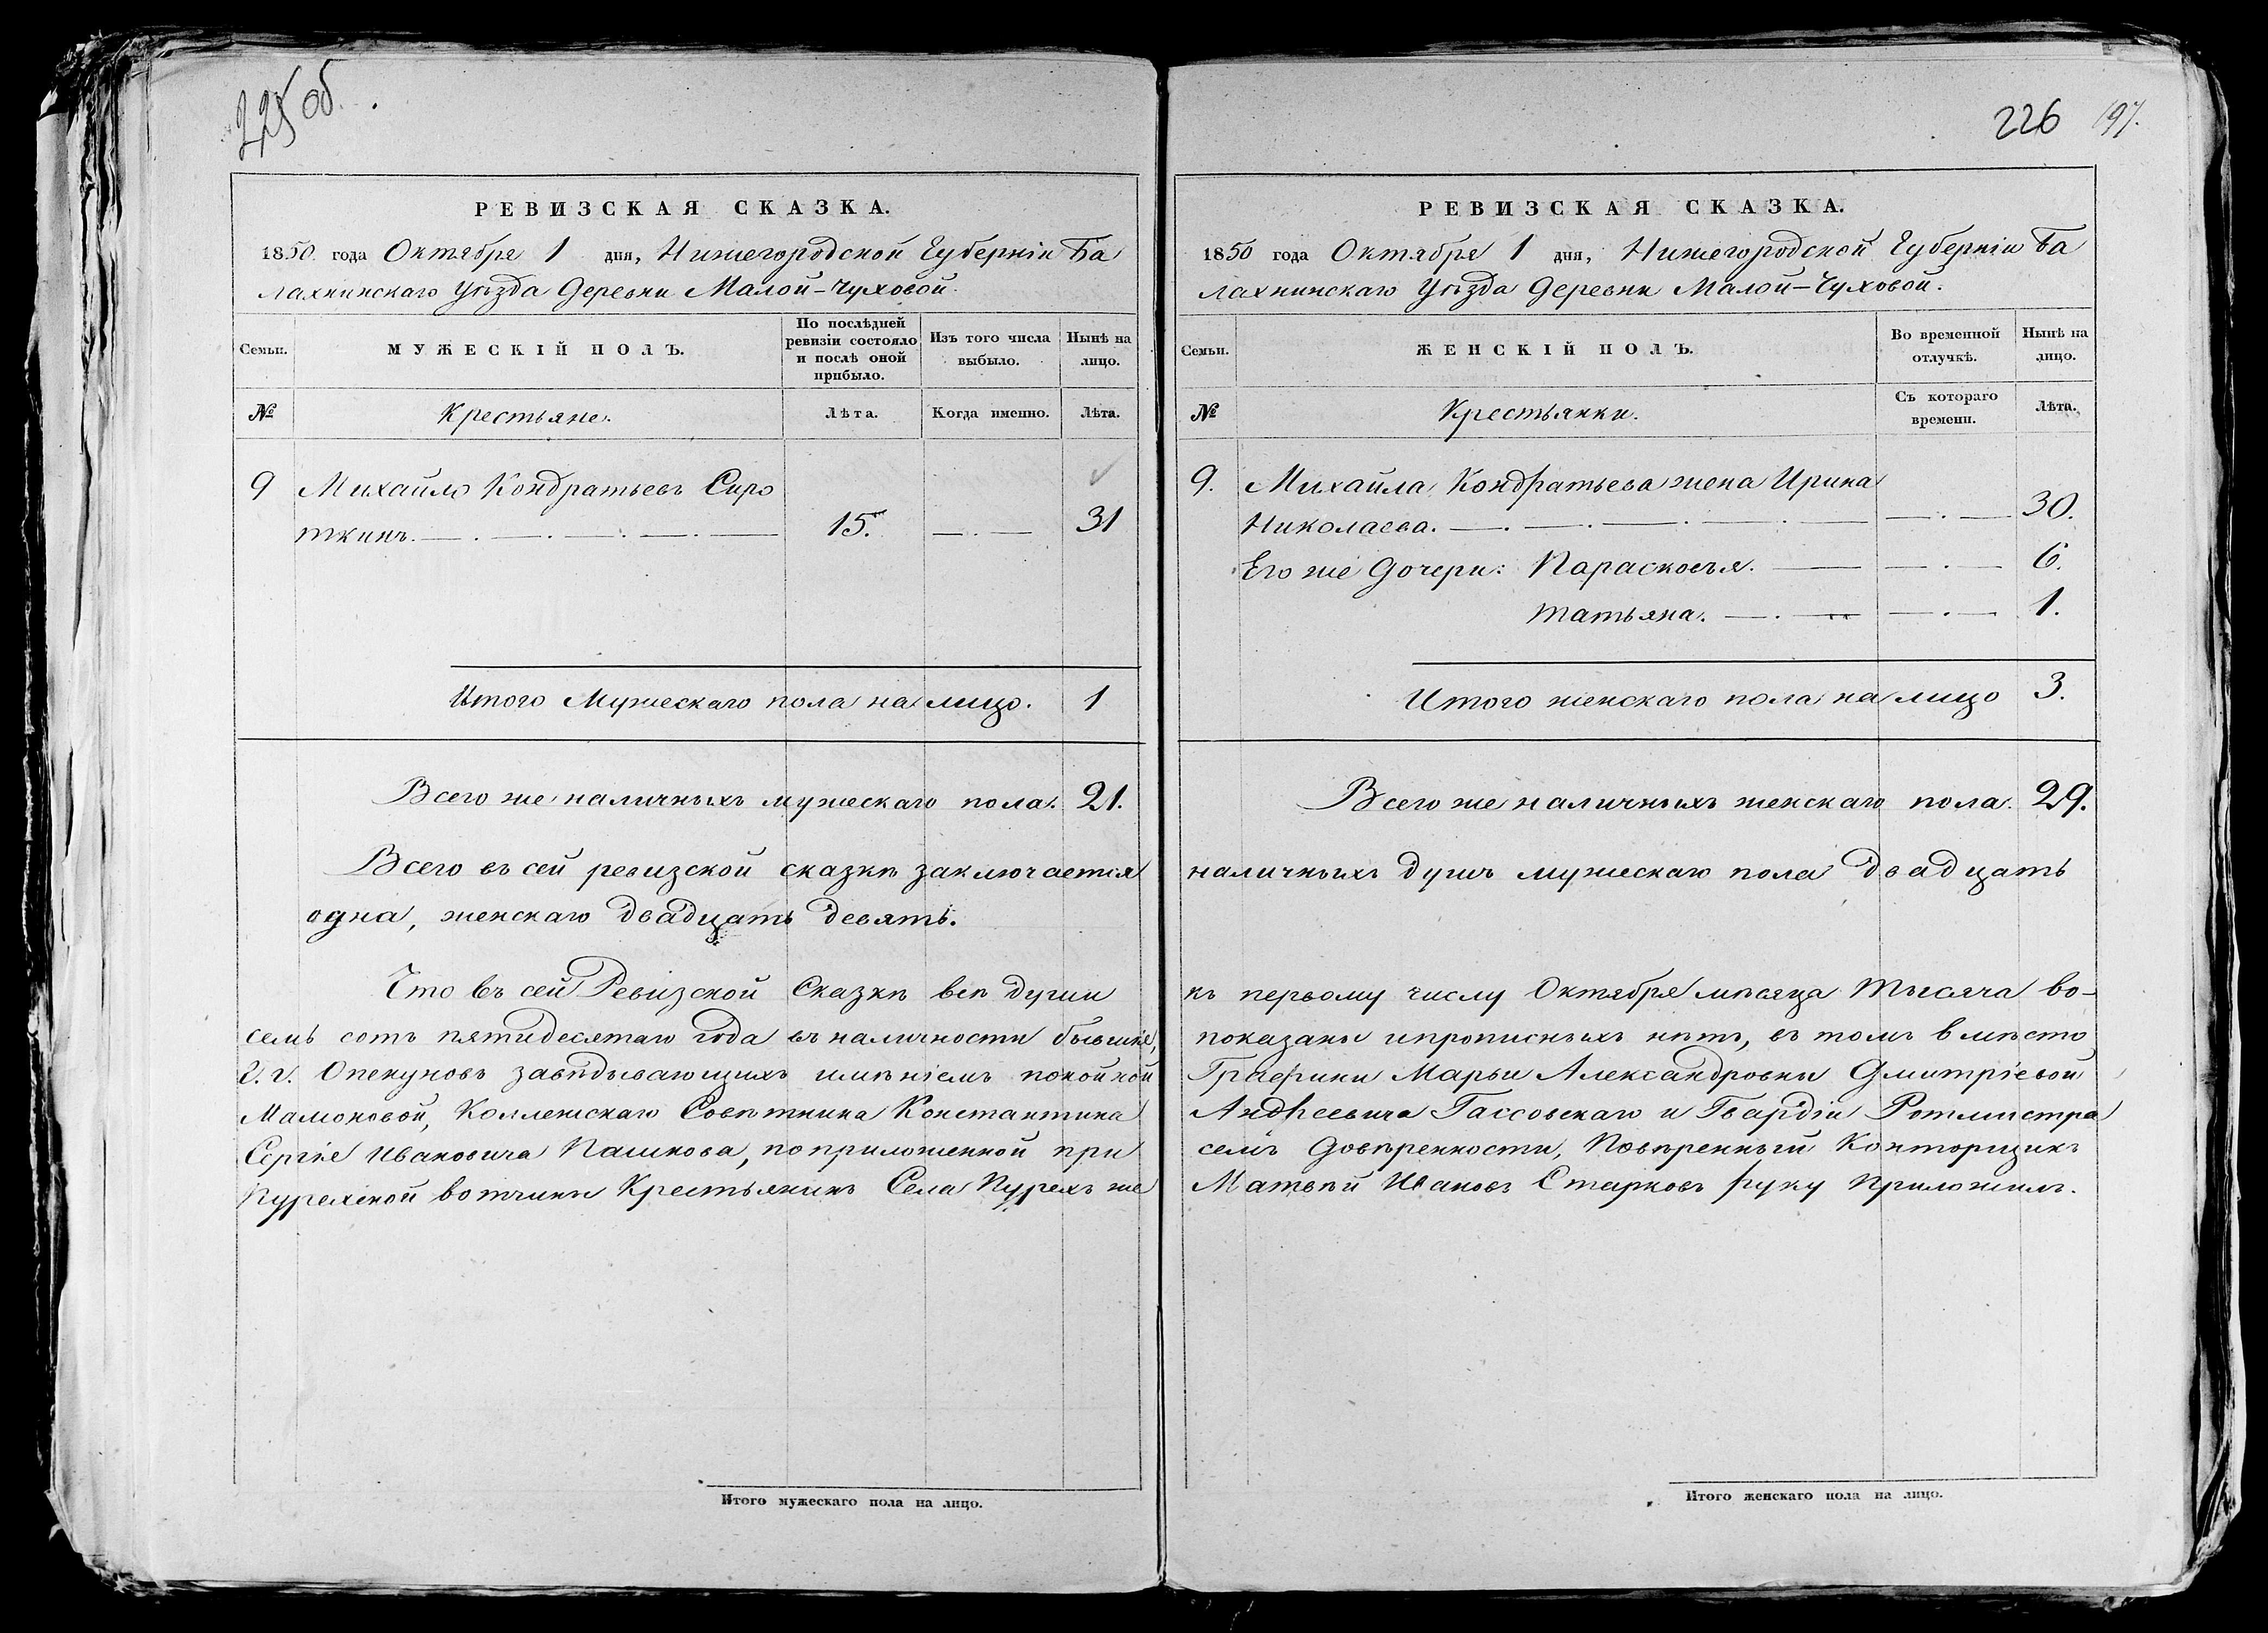 225 об.
РЕВИЗСКАЯ СКАЗКА.
1850 года Октября 1 дня, Нижегородской Губерніи Ба
лахнинскаго Уѣзда Деревни Малой-Чуховой.
Семьи.
МУЖЕСКІЙ ПОЛЪ.
По послѣдней ревизіи состояло и послѣ оной прибыло.
Изъ того числа выбыло.
Нынѣ на лицо.
№
Крестьяне.
Лѣта.
Когда именно.
Лѣта.
9 Михайло Кондратьевъ Сиро
ткинъ. 15. 31
Итого Мужескаго пола на лицо. 1
Всего же наличныхъ мужескаго пола. 21.
Всего въ сей ревизской сказкѣ заключается
одна, женскаго двадцать девять.
Что въ сей Ревизской Сказкѣ всѣ души
семь сотъ пятидесятаго года въ наличности бывшіе,
Г.г. Опекуновъ завѣдывающихъ имѣніемъ покойной
Мамоновой, Коллежскаго Совѣтника Константина
Сергѣе Ивановича Пашкова, поприложенной при
Пурехской вотчины Крестьянинъ Села Пурехъ же
Итого мужескаго пола на лицо.
226 197.
РЕВИЗСКАЯ СКАЗКА.
1850 года Октября 1 дня, Нижегородской Губерніи Ба
лахнинскаго Уѣзда Деревни Малой-Чуховой.
Семьи.
ЖЕНСКІЙ ПОЛЪ.
Во временной отлучкѣ.
Нынѣ на лицо.
№
Крестьянки.
Съ котораго времени.
Лѣта.
9. Михайла Кондратьева жена Ирина
Николаева. 30.
Его же Дочери: Парасковья. 6.
Татьяна. 1.
Итого женскаго пола на лицо 3.
Всего же наличныхъ женскаго пола. 29.
наличныхъ душъ мужескаго пола двадцать
къ первому числу Октября мѣсяца Тысяча во-
показаны ипрописныхъ нѣтъ, въ томъ вмѣсто
Графини Марьи Александровны Дмитріевой
Андреевича Гассовскаго и Гвардіи Ротмистра
семъ Довѣренности, Повѣренный Конторщикъ
Матвѣй Ивановъ Старковъ руку Приложилъ.
Итого женскаго пола на лицо.